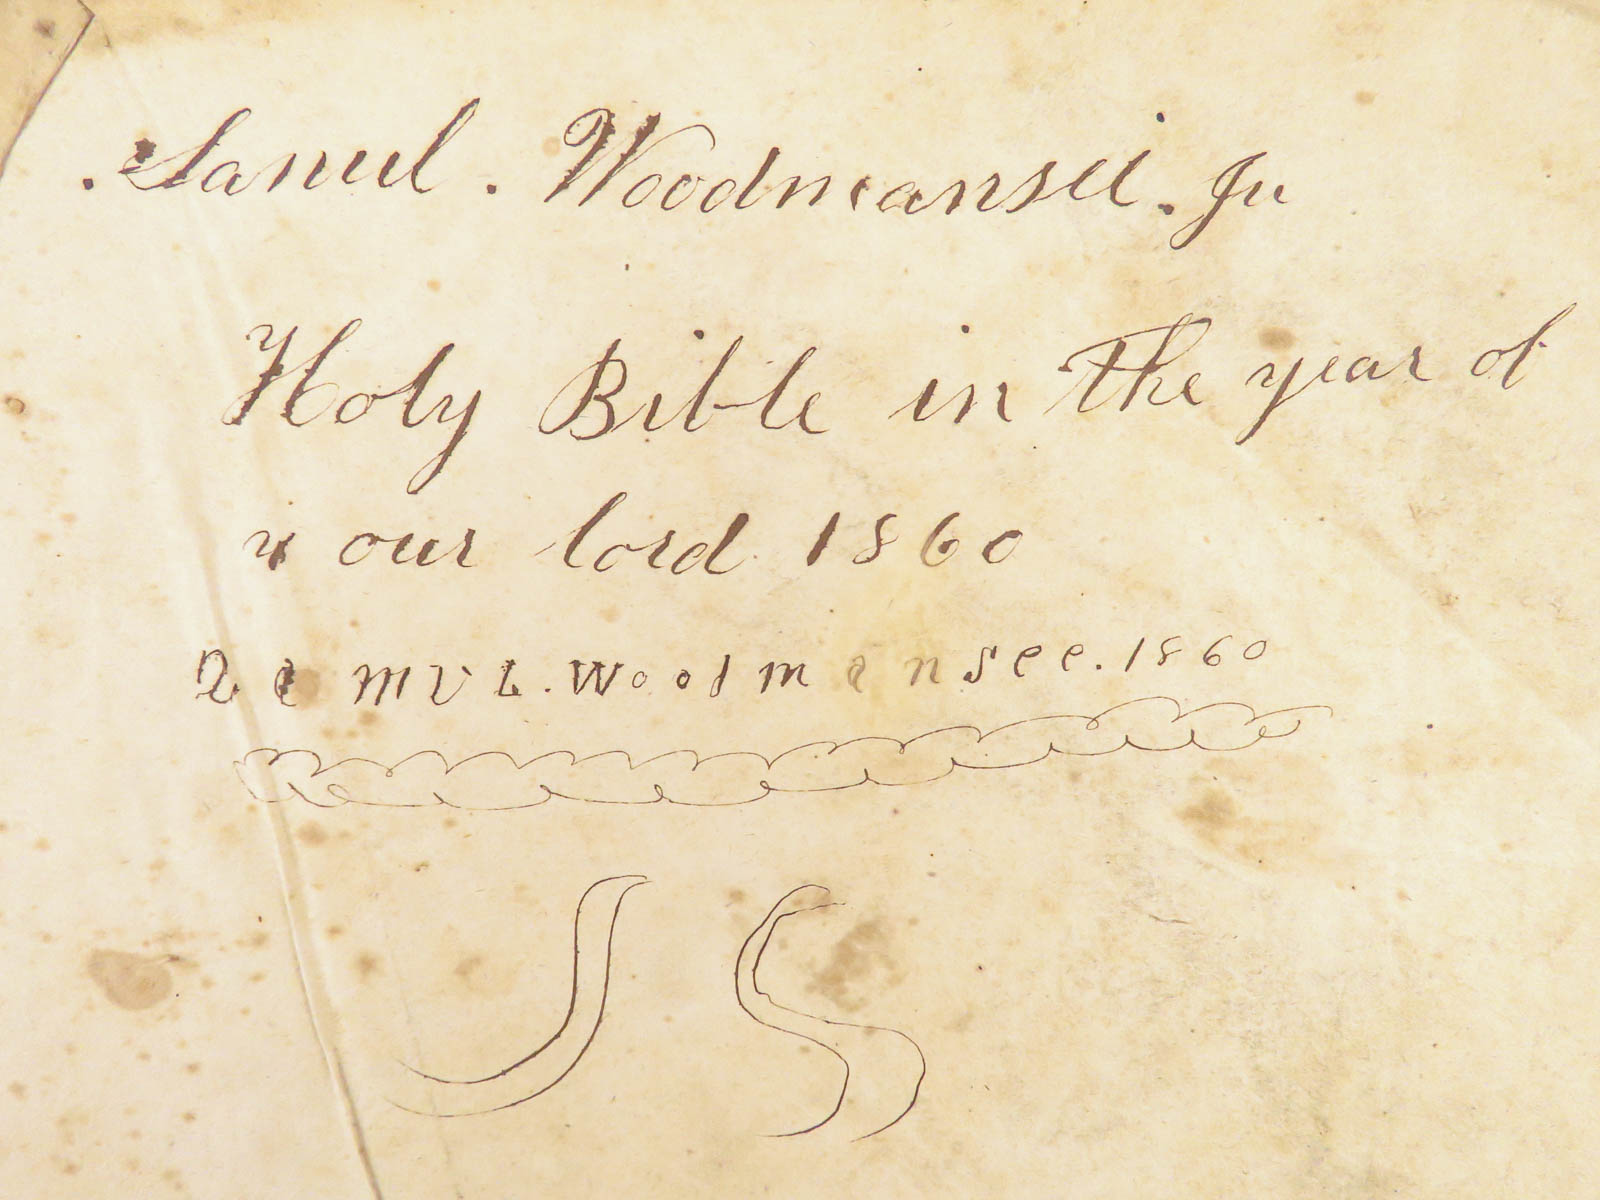 . Samul . Woodmansee . Ju
Holy Bible in the year of
our lord 1860
MVL. Woodmansee. 1860